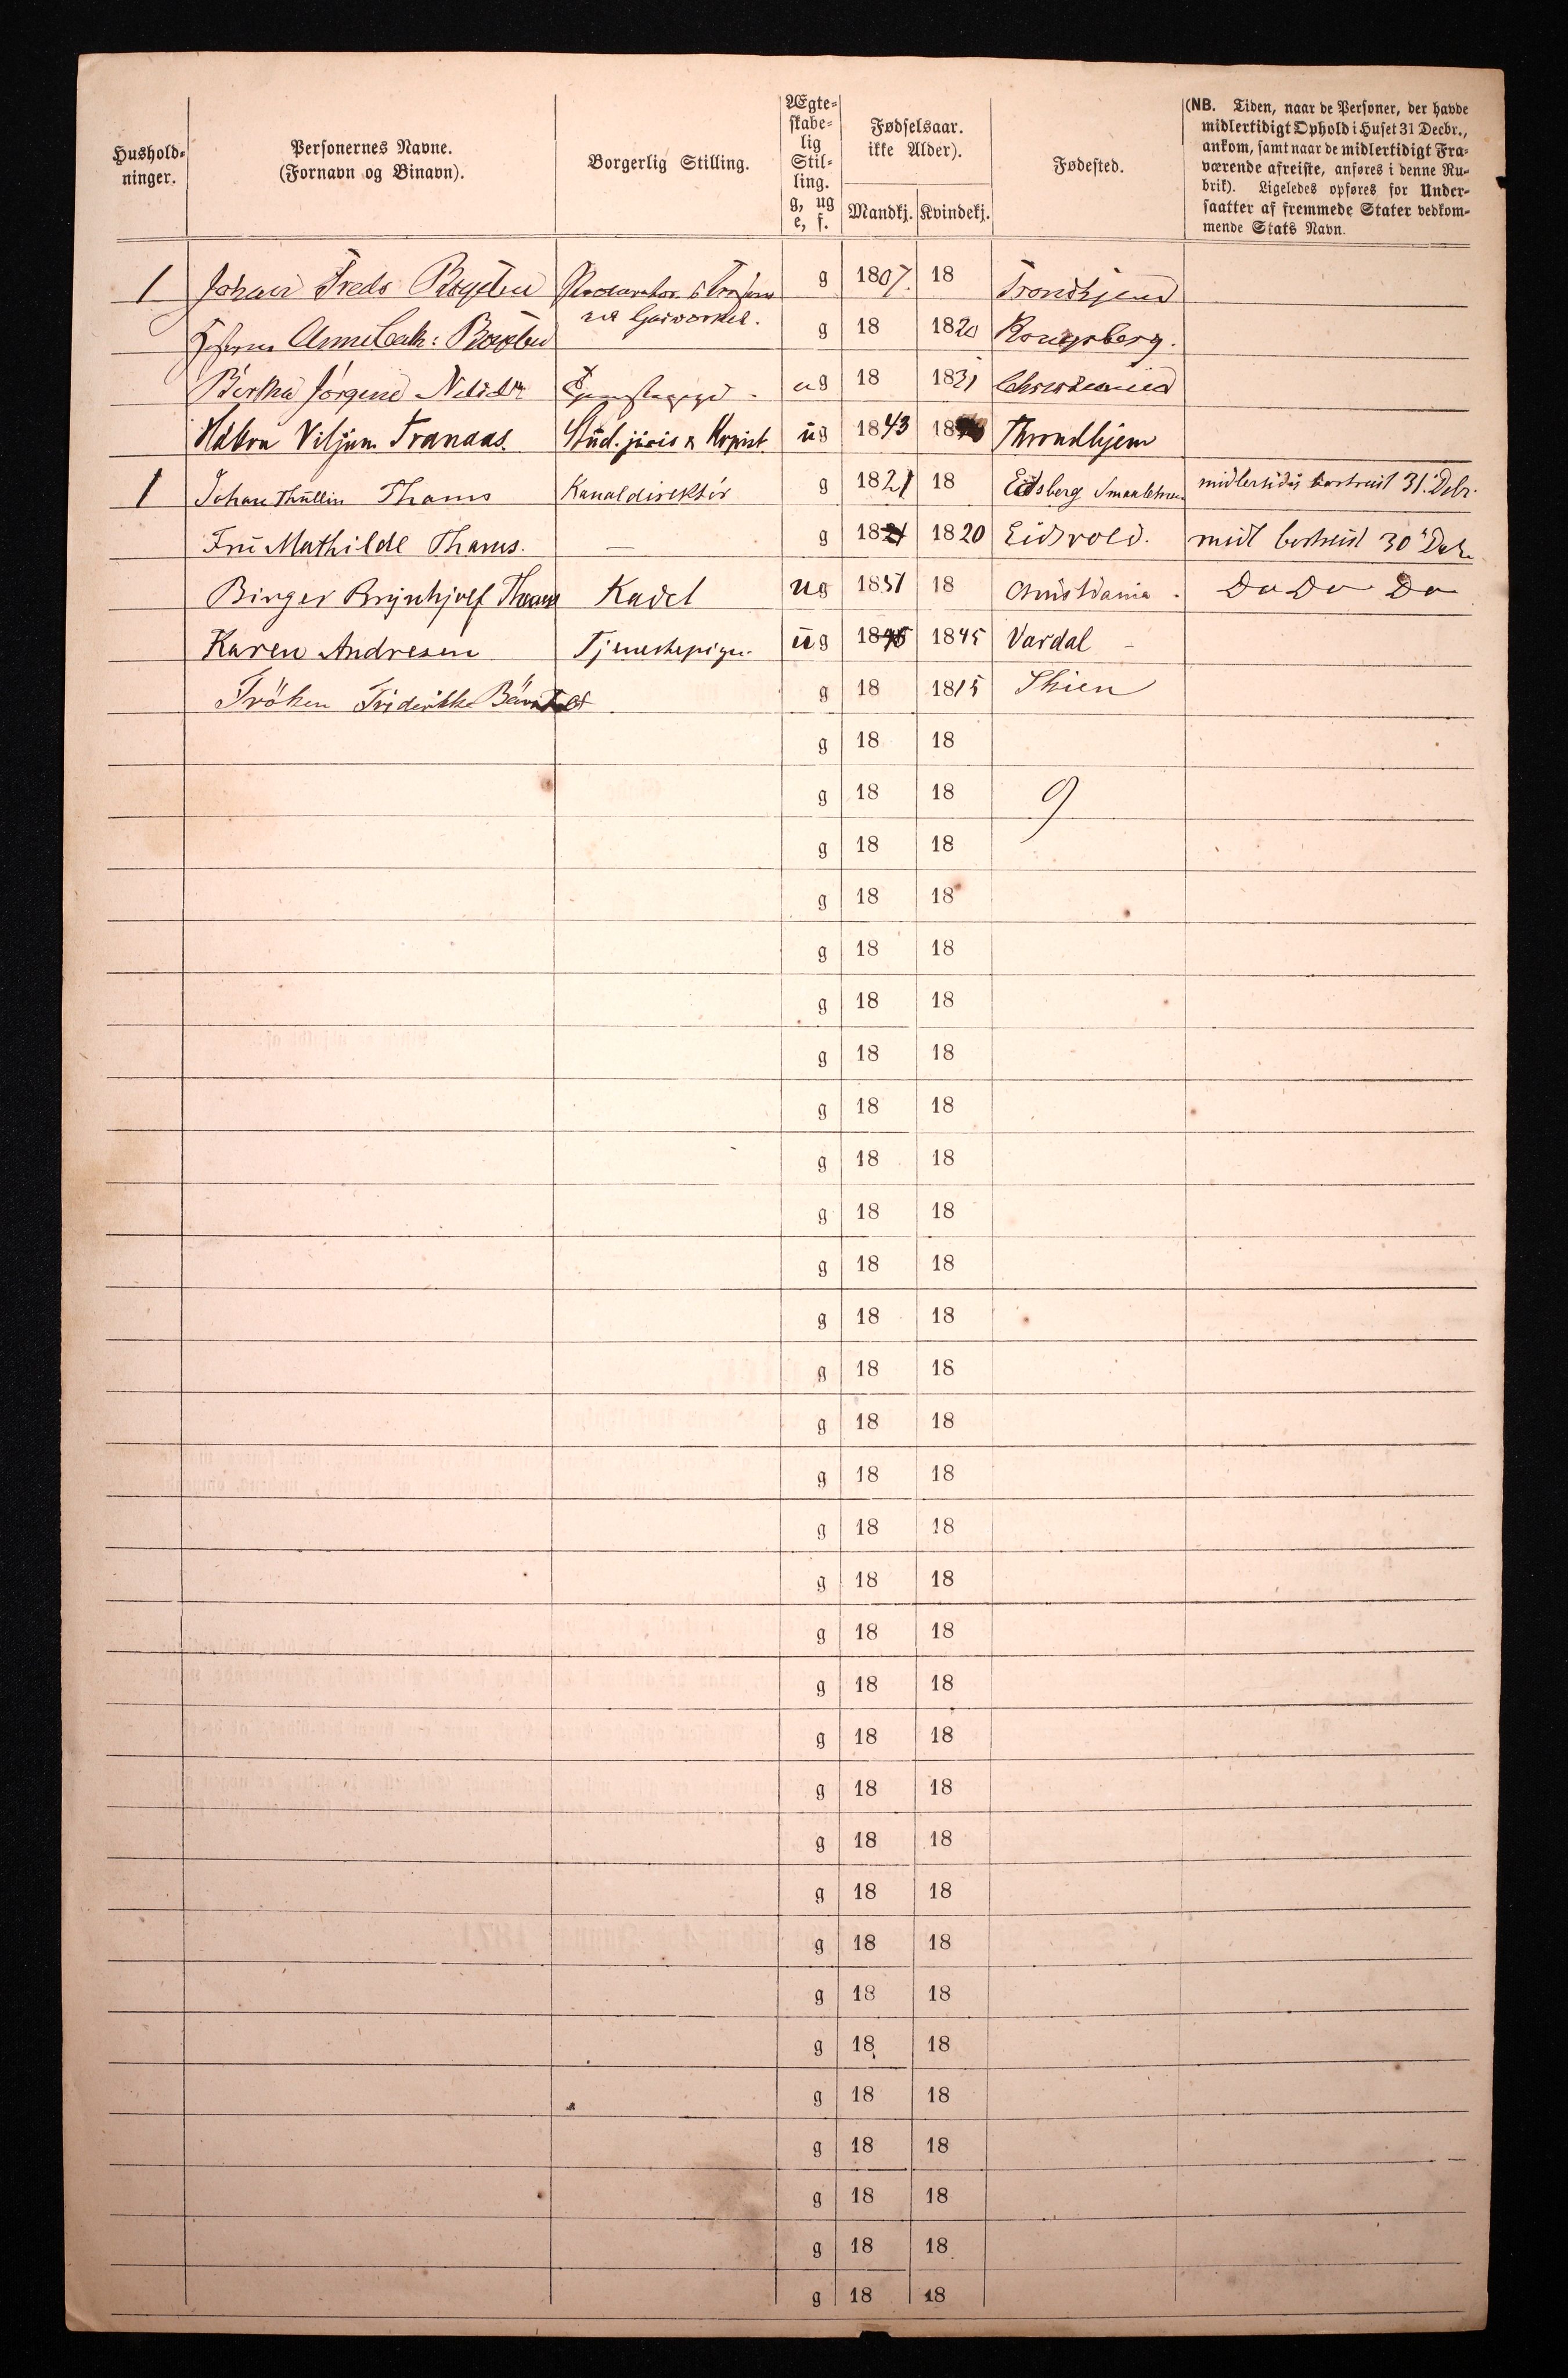 Hushold-
ninger.
Personernes Navne.
(Fornavn og Binavn).
Borgerlig Stilling.
Ægte-
skabe-
lig
Stil-
ling.
g, ug
e, f.
Fødselsaar.
ikke Alder).
Mandkj. Kvindekj.
Fødested.
(NB. Tiden, naar de Personer, der havde
midlertidigt Ophold i Huset 31 Decbr.,
ankom, samt naar de midlertidigt Fra-
værende afreiste, anføres i denne Ru-
brik). Ligeledes opføres for Under-
saatter af fremmede Stater vedkom-
mende Stats Navn.
1 Johan Fredr g 1807. 18 Trondhjem
Anne Cath: g 18 1820 Kongsberg.
Bertha Jørgine ug 18 1831 Christiania
Håkon Viljam Tranaas. Stud. juris & Kopist. ug 1843 18 Throndhjem
1 Johan Thullin Thams Kanaldirektör g 1821 18 Eidsberg Smaalehnene midlertidig bortreist 31. Debr.
Fru Mathilde Thams. — g 18 1820 Eidsvold. midl bortreist 30
Birger Brynhjolf Thams Kadet ug 1851 18 Christiania Do Do Do
Karen Andresen Tjenestepige ug 1845 1845 Vardal
Fröken Friderikke g 18 1815 Skien
g 18 18
g 18 18 9
g 18 18
g 18 18
g 18 18
g 18 18
g 18 18
g 18 18
g 18 18
g 18 18
g 18 18
g 18 18
g 18 18
g 18 18
g 18 18
g 18 18
g 18 18
g 18 18
g 18 18
g 18 18
g 18 18
g 18 18
g 18 18
g 18 18
g 18 18
g 18 18
g 18 18
g 18 18
g 18 18
g 18 18
g 18 18